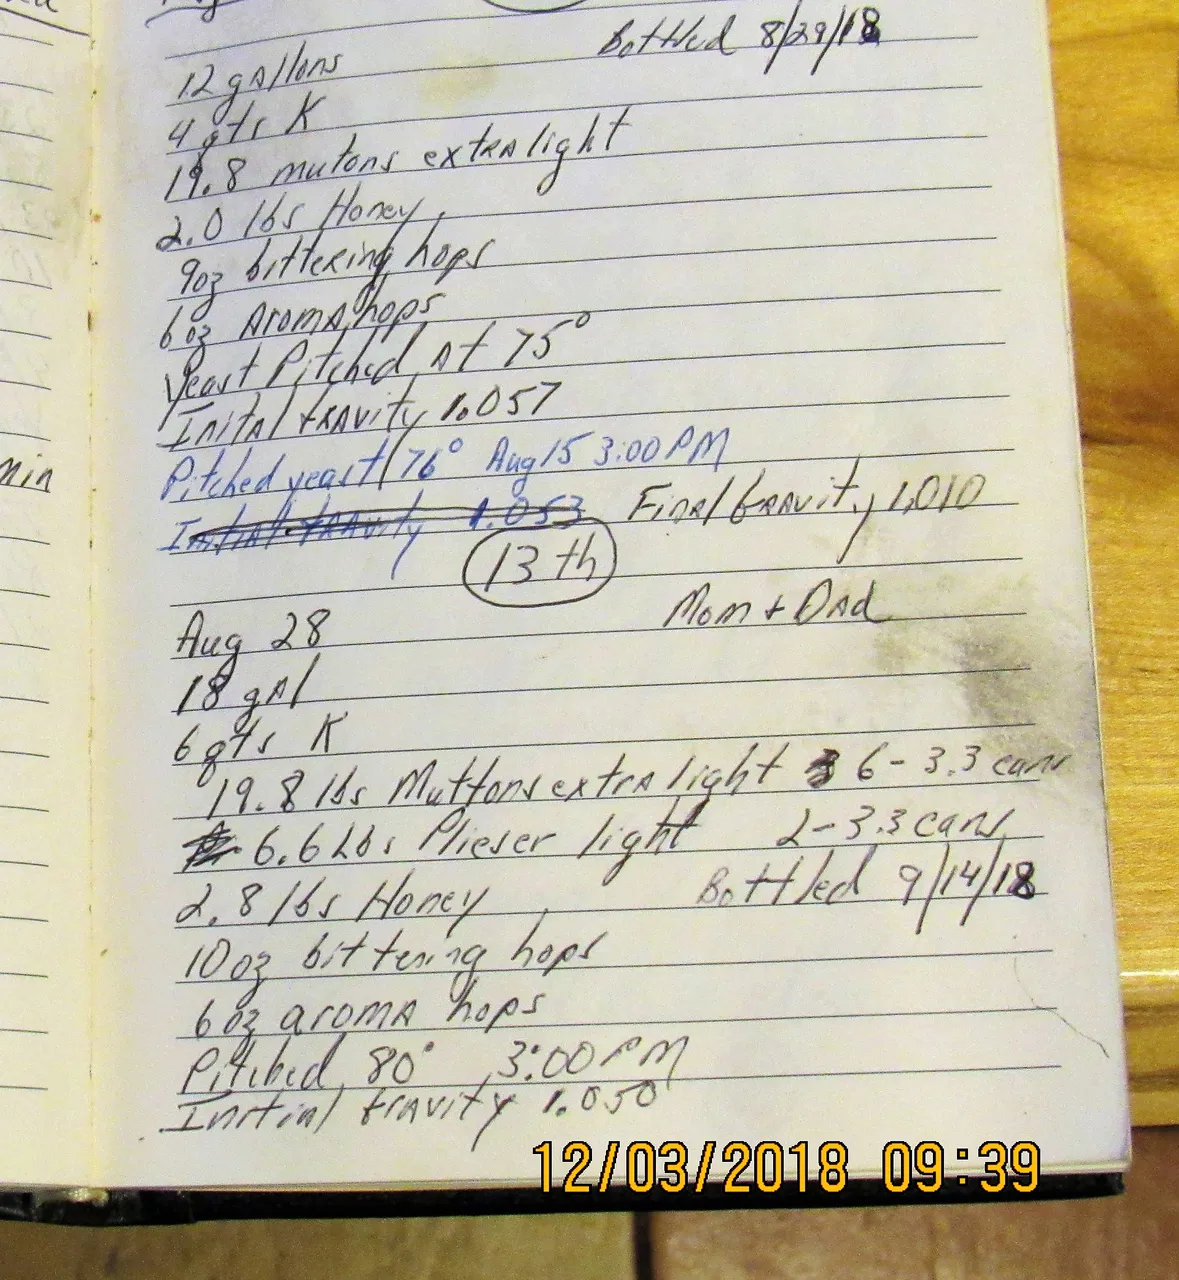 Bottled 8/29/18
12 gallons
4 qts K
19.8 mutons extra light
2.0 lbs Honey
9oz bittering hops
6oz Aroma hops
Yeast Pitched at 75°
Inital Gravity 1.057
Pitched yeast 76° Aug 15 3:00 PM
Initial Gravity 1.053 Final Gravity 1.010
13 th
Aug 28 Mom + Dad
18 gal
6 qts K
19.8 lbs Muttons extra light 6 - 3.3 cans
6.6 Lbs Plieser light 2 - 3.3 cans
2.8 lbs Honey Bottled 9/14/18
10 oz bittering hops
6 oz aroma hops
Pitched 80° 3:00 PM
Initial Gravity 1.050
min
12/03/2018 09:39